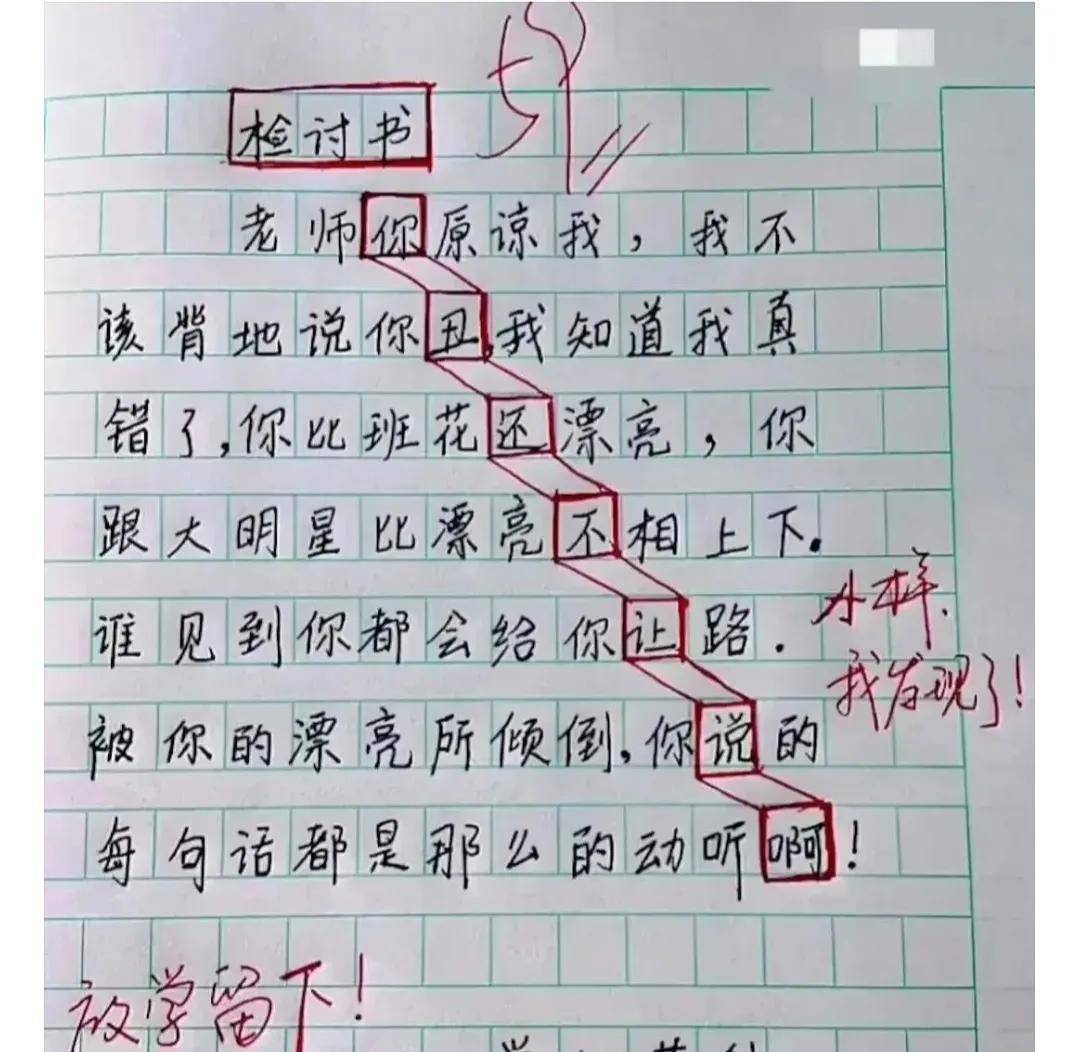 检讨书
59
老师你原谅我，我不
该背地说你丑，我知道我真
错了，你比班花还漂亮，你
跟大明星比漂亮不相上下。
谁见到你都会给你让路．
被你的漂亮所倾倒，你说的
每句话都是那么的动听啊！
小样．
我发现了！
放学留下！